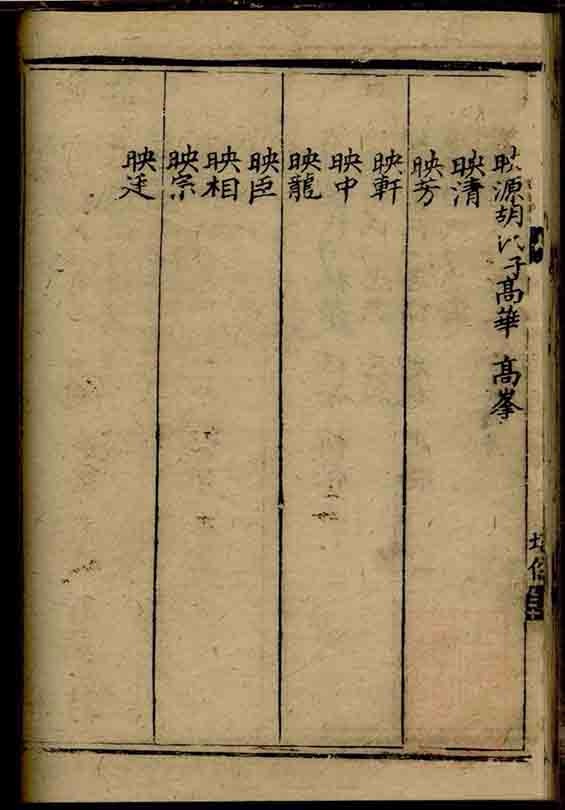 映源胡氏子高華 高峯
映清
映芳
映軒
映中
映龍
映臣
映相
映宗
映廷